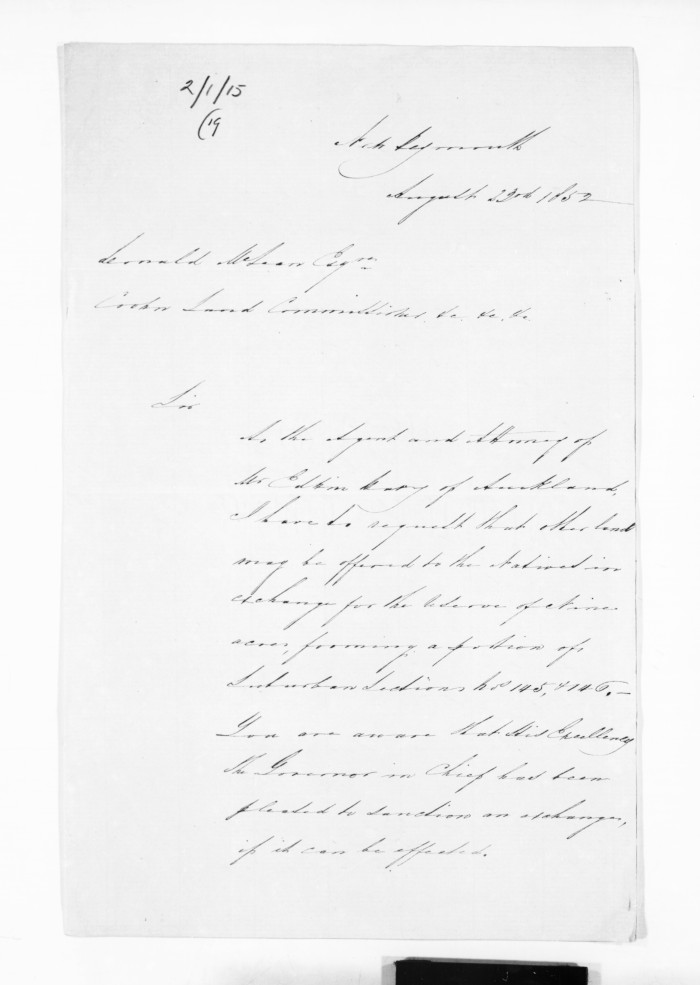 2/1/15
(19
New Plymouth
August 23rd 1852
Donald McLean Esqre
Land Commissioner. &c. &c. &c.
Sir
As the Agent and Attorney of
Mr Edwin Davy of Auckland,
I have to request that other land
may be offered to the Natives in
exchange for the reserve of Nine
acres, forming a portion of,
Suburban Sections Nos 145, & 146. —
You are aware that His Excellency
the Governor in Chief has been
pleased to sanction an exchange,
if it can be effected.